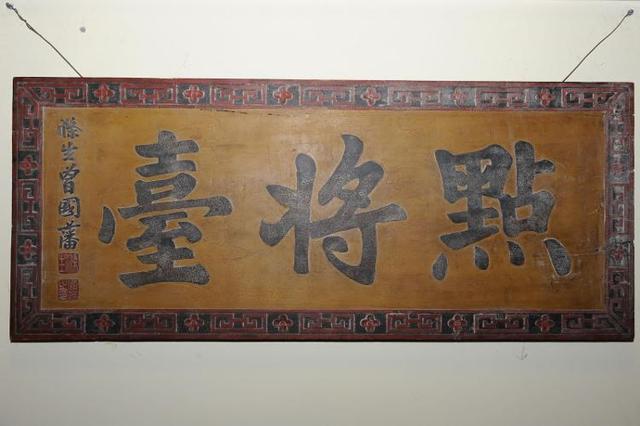 點將臺
滌生曾國藩